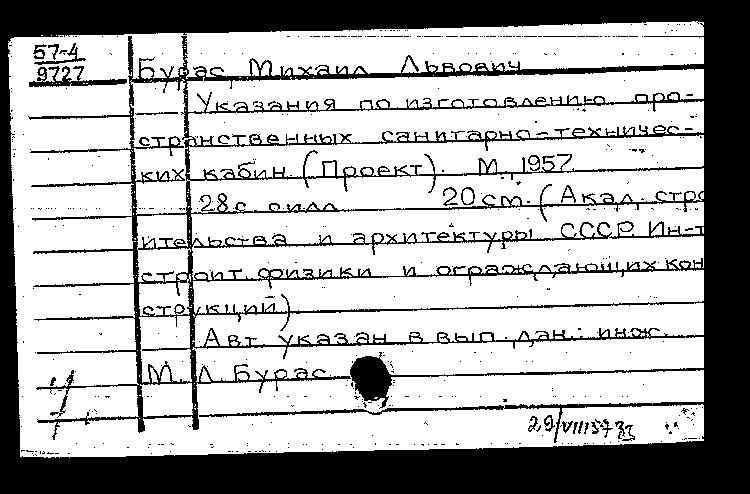 57-4
9727
Бурас, Михаил Львович
Указания по изготовлению про-
странственных санитарно-техничес-
ких кабин. (Проект). М., 1957.
28 с. с илл. 20 см. (Акад. стро
ительства и архитектуры СССР. Ин-т
строит. физики и ограждающих кон
струкций).
Авт. указан в вып. дан.: инж.
М. Л. Бурас.
29/VIII57